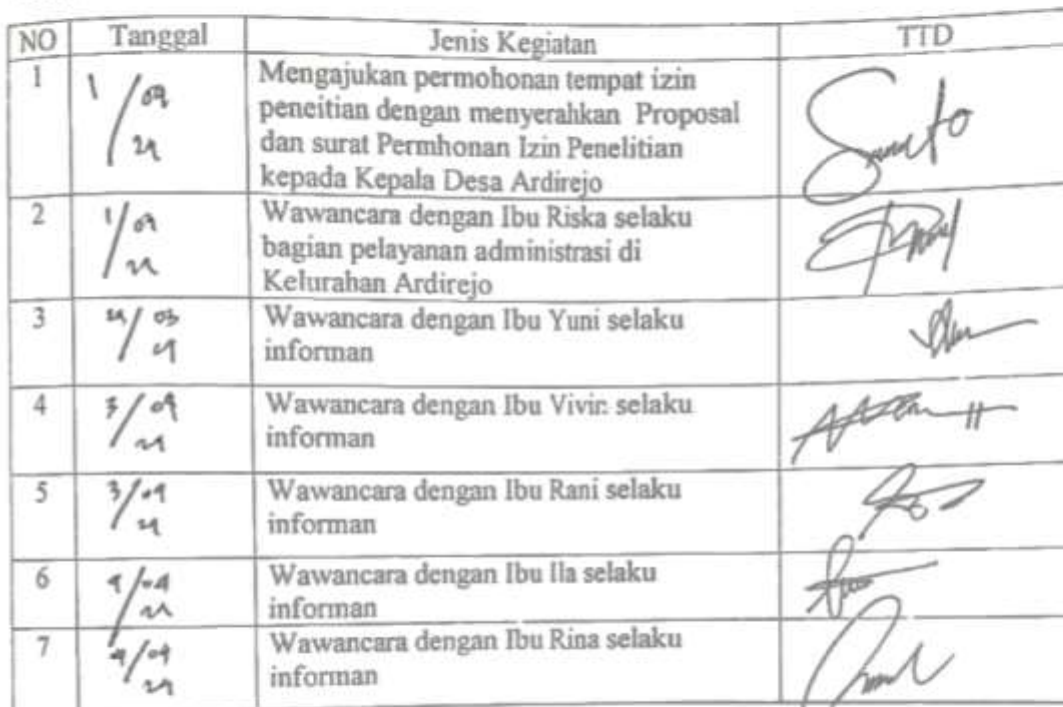 NO Tanggal Jenis Kegiatan TTD
1 Mengajukan permohonan tempat izin
peneitian dengan menyerahkan Proposal
dan surat Permhonan Izin Penelitian
kepada Kepala Desa Ardirejo
2 Wawancara dengan Ibu Riska selaku
bagian pelayanan administrasi di
Kelurahan Ardirejo
3 Wawancara dengan Ibu Yuni selaku
informan
4 Wawancara dengan Ibu Vivin selaku
informan
5 Wawancara dengan Ibu Rani selaku
informan
6 Wawancara dengan Ibu Ila selaku
informan
7 Wawancara dengan Ibu Rina selaku
informan